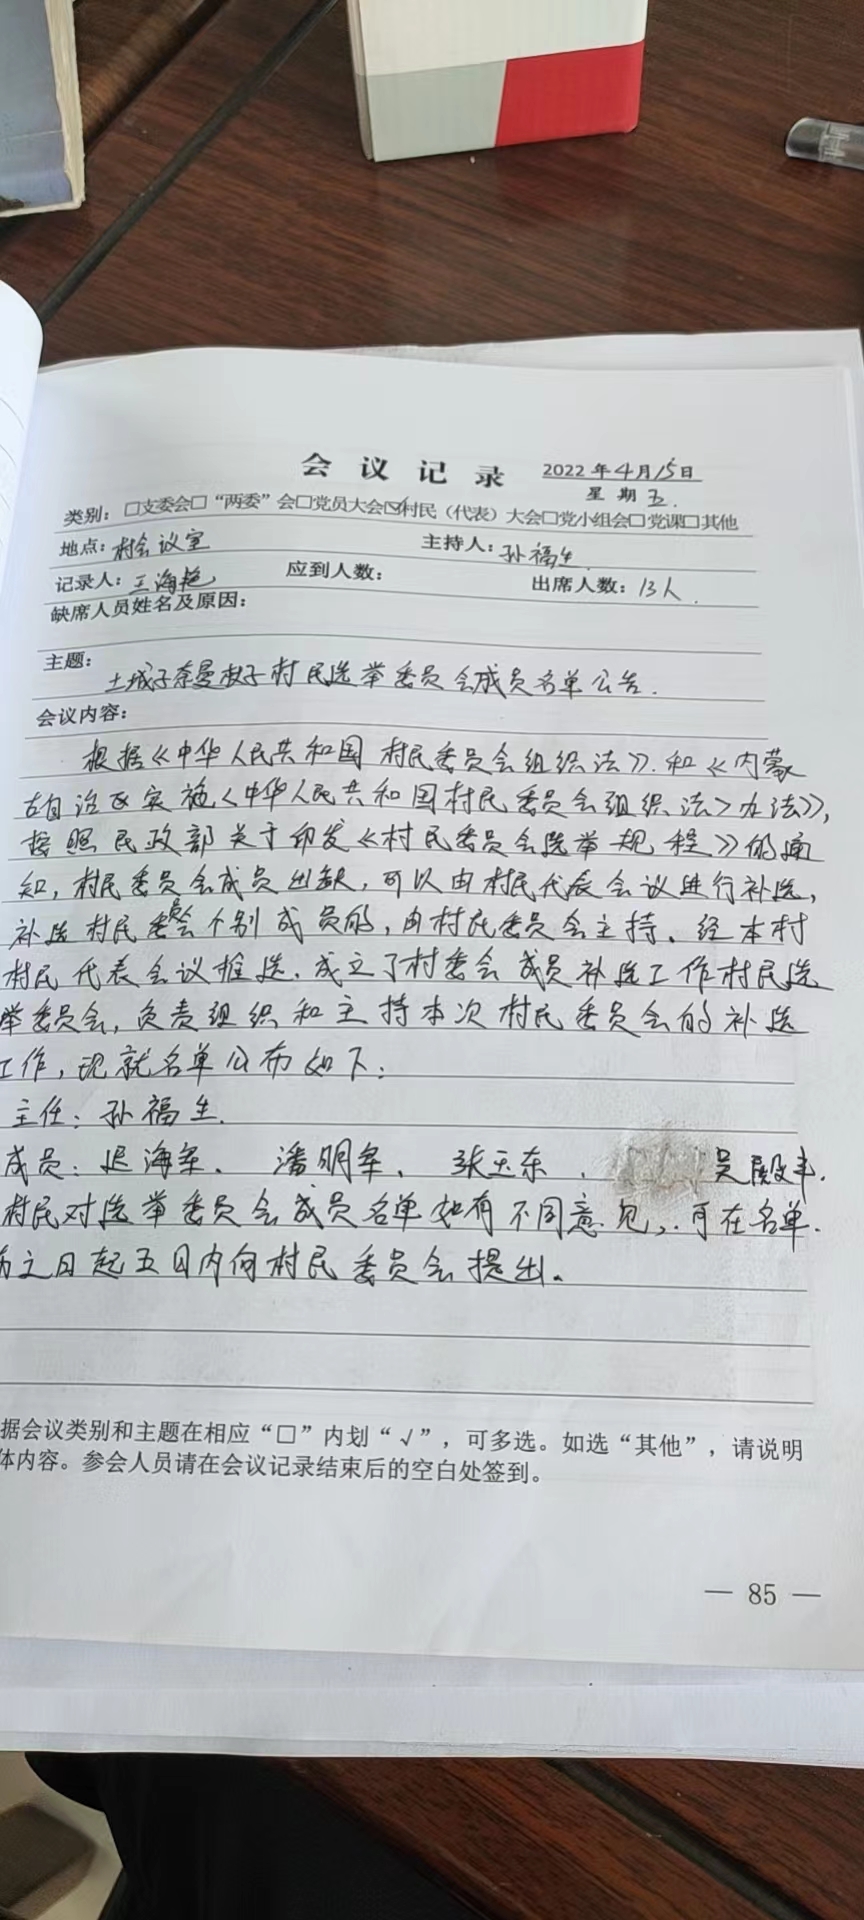 会 议 记 录 2022年4月15日
星 期 五.
类别：□支委会□“两委”会□党员大会☑村民（代表）大会□党小组会□党课□其他
地点：村会议室 主持人：孙福生
记录人：王海艳 应到人数： 出席人数：13人.
缺席人员姓名及原因：
主题：
土城子奈曼杖子村民选举委员会成员名单公告.
会议内容：
根据《中华人民共和国村民委员会组织法》.和《内蒙
古自治区实施〈中华人民共和国村民委员会组织法〉办法》,
按照民政部关于印发《村民委员会选举规程》的通
知,村民委员会成员出缺,可以由村民代表会议进行补选,
补选村民委员会个别成员的,由村民委员会主持、经本村
村民代表会议推选.成立了村委会成员补选工作村民选
举委员会,负责组织和主持本次村民委员会的补选
工作,现就名单公布如下:
主任: 孙福生.
成员: 迟海军、 潘明军、 张玉东、 吴殿丰.
村民对选举委员会成员名单如有不同意见,.可在名单.
布之日起五日内向村民委员会提出。
据会议类别和主题在相应“□”内划“√”，可多选。如选“其他”，请说明
体内容。参会人员请在会议记录结束后的空白处签到。
— 85 —